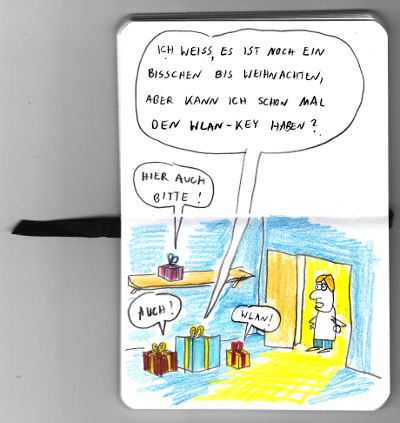 ICH WEISS, ES IST NOCH EIN
BISSCHEN BIS WEIHNACHTEN,
ABER KANN ICH SCHON MAL
DEN WLAN-KEY HABEN?
HIER AUCH
BITTE!
AUCH!
WLAN!